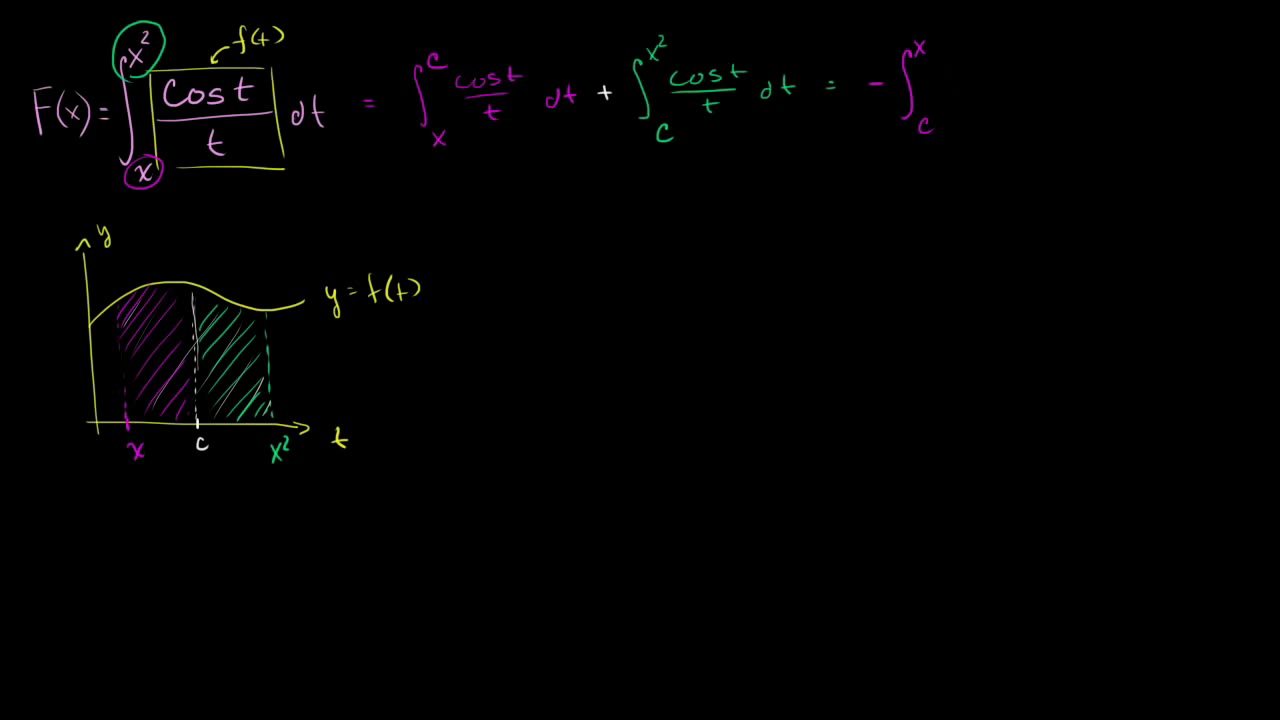 f(t)
F(x) = ∫_x^{x²} cos t / t dt = ∫_x^c cos t / t dt + ∫_c^{x²} cos t / t dt = - ∫_c^x
y
y = f(t)
x c x² t